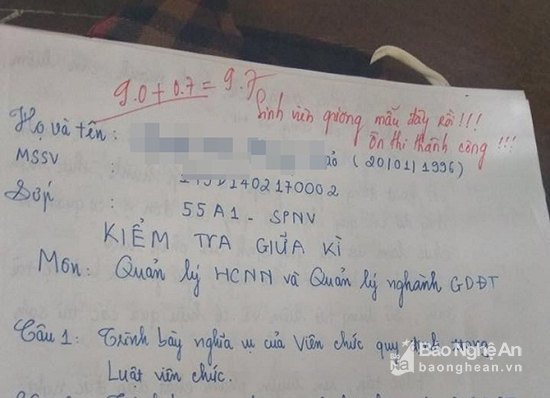 9.0 + 0.7 = 9.7
Sinh viên gương mẫu đây rồi!!!
Ôn thi thành công !!!
Họ và tên :
ảo (20/01/1996)
MSSV :
1402170002
Lớp : 55A1 - SPNV
KIỂM TRA GIỮA KÌ
Môn: Quản lý HCNN và Quản lý nghành GDĐT
Câu 1: Trình bày nghĩa vụ của Viên chức quy định trong
Luật viên chức.
Báo Nghệ An
baonghean.vn